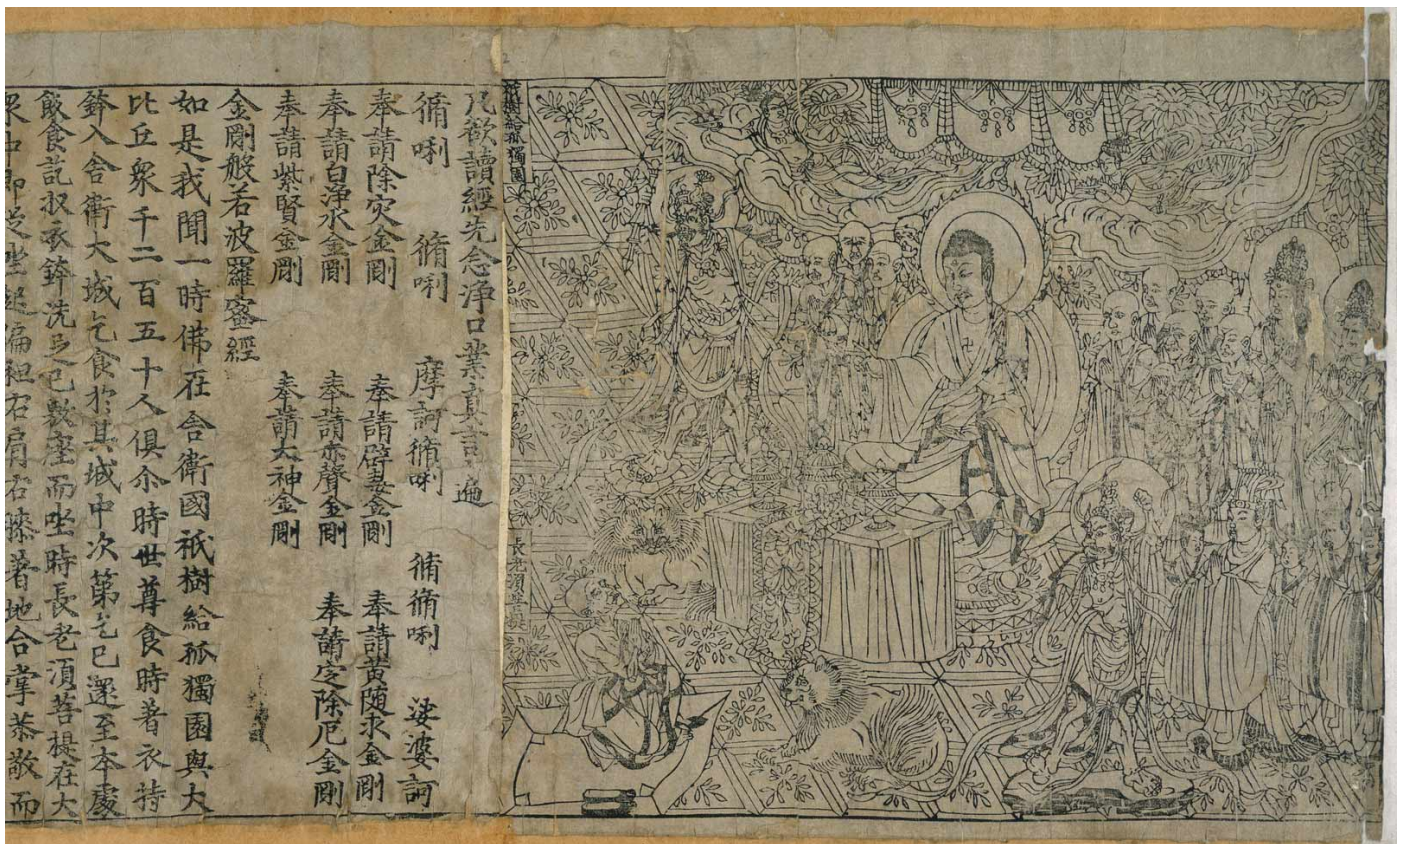 祇樹給孤獨園
長老須菩提
凡欲讀經先念淨口業真言一遍
脩唎 脩唎 摩訶脩唎 脩脩唎 娑婆訶
奉請除灾金剛 奉請辟毒金剛 奉請黄随求金剛
奉請白淨水金剛 奉請赤聲金剛 奉請定除厄金剛
奉請紫賢金剛 奉請大神金剛
金剛般若波羅蜜經
如是我聞一時佛在舍衛國祇樹給孤獨園與大
比丘眾千二百五十人俱尒時世尊食時著衣持
鉢入舍衛大城乞食於其城中次第乞已還至本處
飯食訖収衣鉢洗足已敷座而坐時長老須菩提在大
眾中即從坐起偏袒右肩右膝著地合掌恭敬而